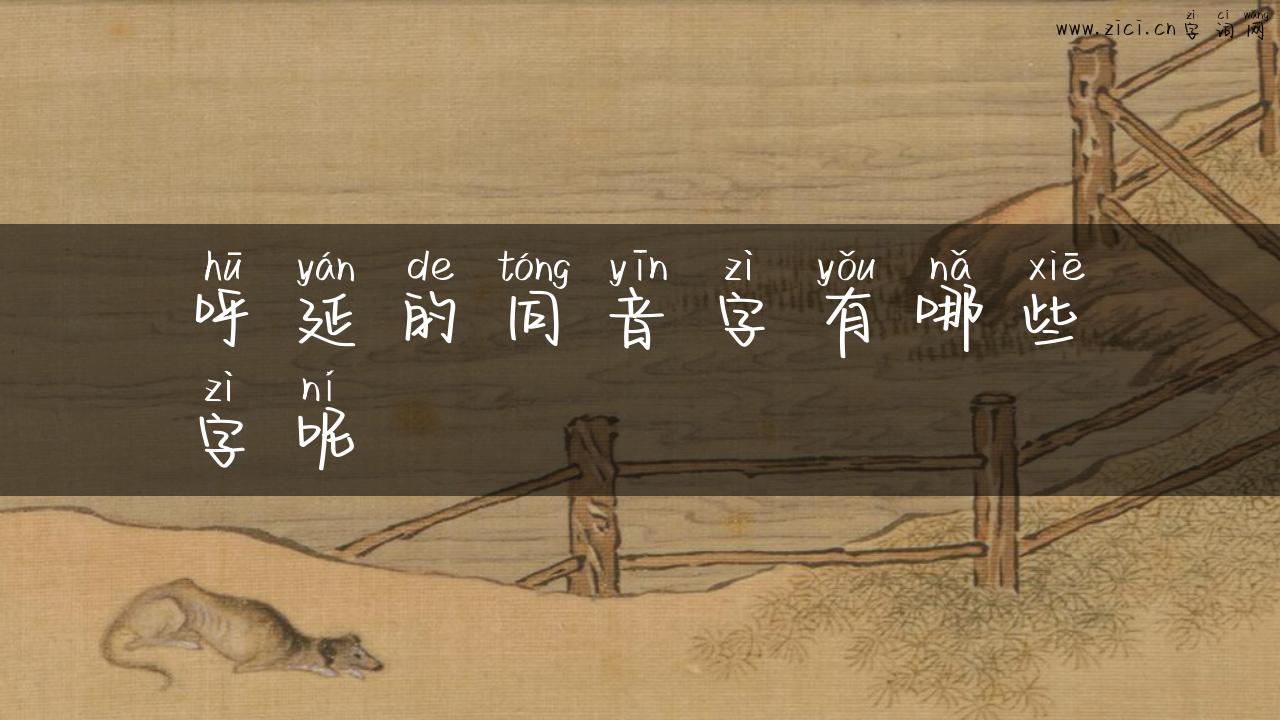 zì cì wǎng
www.zici.cn字词网
hū yán de tóng yīn zì yǒu nǎ xiē
呼延的同音字有哪些
zì ní
字呢